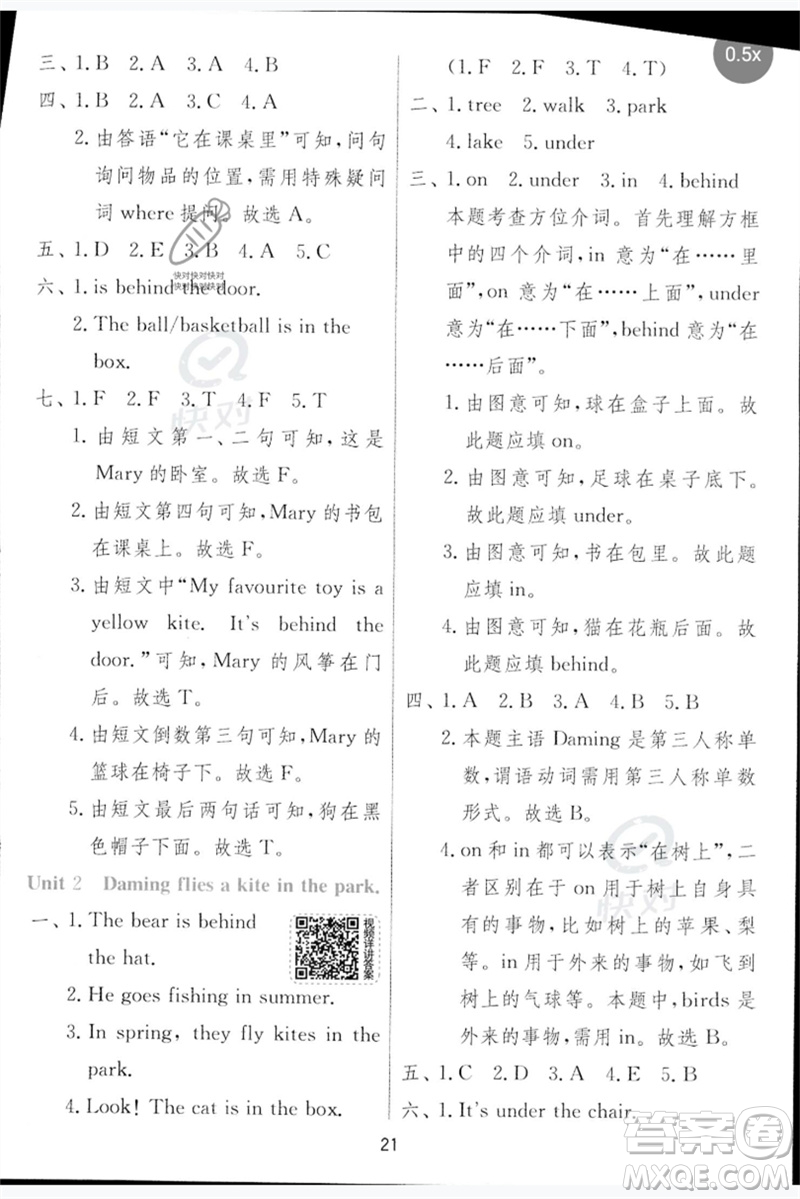 三、1. B 2. A 3. A 4. B
四、1. B 2. A 3. C 4. A
2. 由答语“它在课桌里”可知，问句
询问物品的位置，需用特殊疑问
词 where 提问。故选 A。
五、1. D 2. E 3. B 4. A 5. C
六、1. is behind the door.
2. The ball/basketball is in the
box.
七、1. F 2. F 3. T 4. F 5. T
1. 由短文第一、二句可知，这是
Mary 的卧室。故选 F。
2. 由短文第四句可知，Mary 的书包
在课桌上。故选 F。
3. 由短文中“My favourite toy is a
yellow kite. It's behind the
door.”可知，Mary 的风筝在门
后。故选 T。
4. 由短文倒数第三句可知，Mary 的
篮球在椅子下。故选 F。
5. 由短文最后两句话可知，狗在黑
色帽子下面。故选 T。
Unit 2 Daming flies a kite in the park.
一、1. The bear is behind
the hat.
2. He goes fishing in summer.
3. In spring, they fly kites in the
park.
4. Look! The cat is in the box.
视频详讲答案
0.5x
(1. F 2. F 3. T 4. T)
二、1. tree 2. walk 3. park
4. lake 5. under
三、1. on 2. under 3. in 4. behind
本题考查方位介词。首先理解方框
中的四个介词，in 意为“在……里
面”，on 意为“在……上面”，under
意为“在……下面”，behind 意为“在
……后面”。
1. 由图意可知，球在盒子上面。故
此题应填 on。
2. 由图意可知，足球在桌子底下。
故此题应填 under。
3. 由图意可知，书在包里。故此题
应填 in。
4. 由图意可知，猫在花瓶后面。故
此题应填 behind。
四、1. A 2. B 3. A 4. B 5. B
2. 本题主语 Daming 是第三人称单
数，谓语动词需用第三人称单数
形式。故选 B。
4. on 和 in 都可以表示“在树上”，二
者区别在于 on 用于树上自身具
有的事物，比如树上的苹果、梨
等。in 用于外来的事物，比如
树上的气球等。本题中，birds 是
外来的事物，需用 in。故选 B。
五、1. C 2. D 3. A 4. E 5. B
六、1. It's under the chair.
21
快对快对快对
快对快对快对
快对
快对
答案卷
MXQE.COM